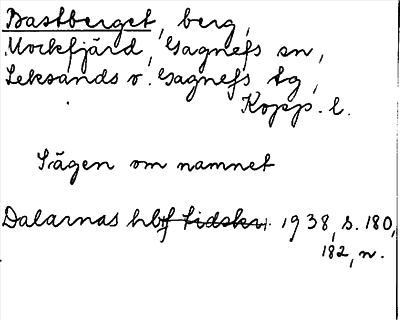 Bastberget, berg,
Mockfjärd, Gagnefs sn,
Leksands o. Gagnefs tg,
Kopp. l.
Sägen om namnet
Dalarnas hbf tidskr. 1938, s. 180,
182, n.